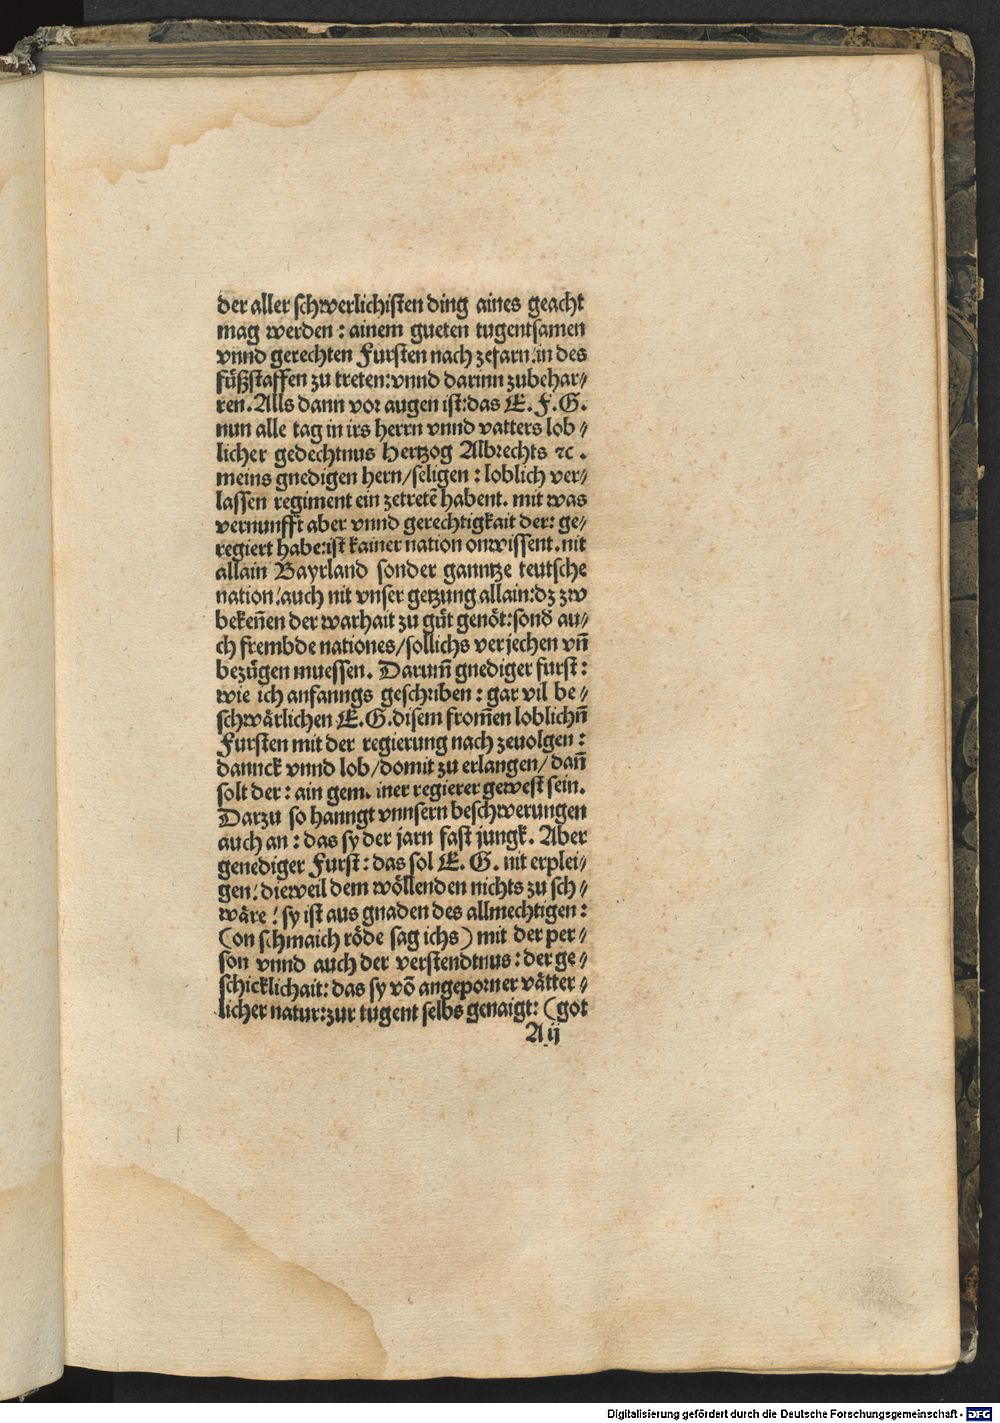 der aller schwerlichisten ding aines geacht
mag werden : ainem gueten tugentsamen
vnnd gerechten Fursten nach zefarn: in des
fůßstaffen zu treten: vnnd darinn zubehar⸗
ren. Alls dann vor augen ist: das E. F. G.
nun alle tag in irs herrn vnnd vatters lob⸗
licher gedechtnus Hertzog Albrechts ꝛc .
meins gnedigen hern/ seligen : loblich ver⸗
lassen regiment ein zetretē habent. mit was
vernunfft aber vnnd gerechtigkait der: ge⸗
regiert habe: ist kainer nation onwissent. nit
allain Bayrland sonder ganntze teutsche
nation: auch nit vnser getzung allain: dz zw
bekeñen der warhait zu gůt genöt: sond̄ au⸗
ch frembde nationes/ sollichs verjechen vñ
bezůgen muessen. Darum̄ gnediger furst :
wie ich anfanngs geschriben : gar vil be⸗
schwärlichen E. G. disem from̄en loblichñ
Fursten mit der regierung nach zeuolgen :
dannck vnnd lob/ domit zu erlangen/ dañ
solt der : ain gem. iner regierer gewest sein.
Darzu so hanngt vnnsern beschwerungen
auch an : das sy der jarn fast jungk. Aber
genediger Furst : das sol E. G. nit erplei⸗
gen: dieweil dem wöllenden nichts zu sch⸗
wäre : sy ist aus gnaden des allmechtigen :
(on schmaich röde sag ichs) mit der per⸗
son vnnd auch der verstendtnus : der ge⸗
schicklichait: das sy vō angeporner vätter⸗
licher natur: zur tugent selbs genaigt: (got
A ij
Digitalisierung gefördert durch die Deutsche Forschungsgemeinschaft - DFG